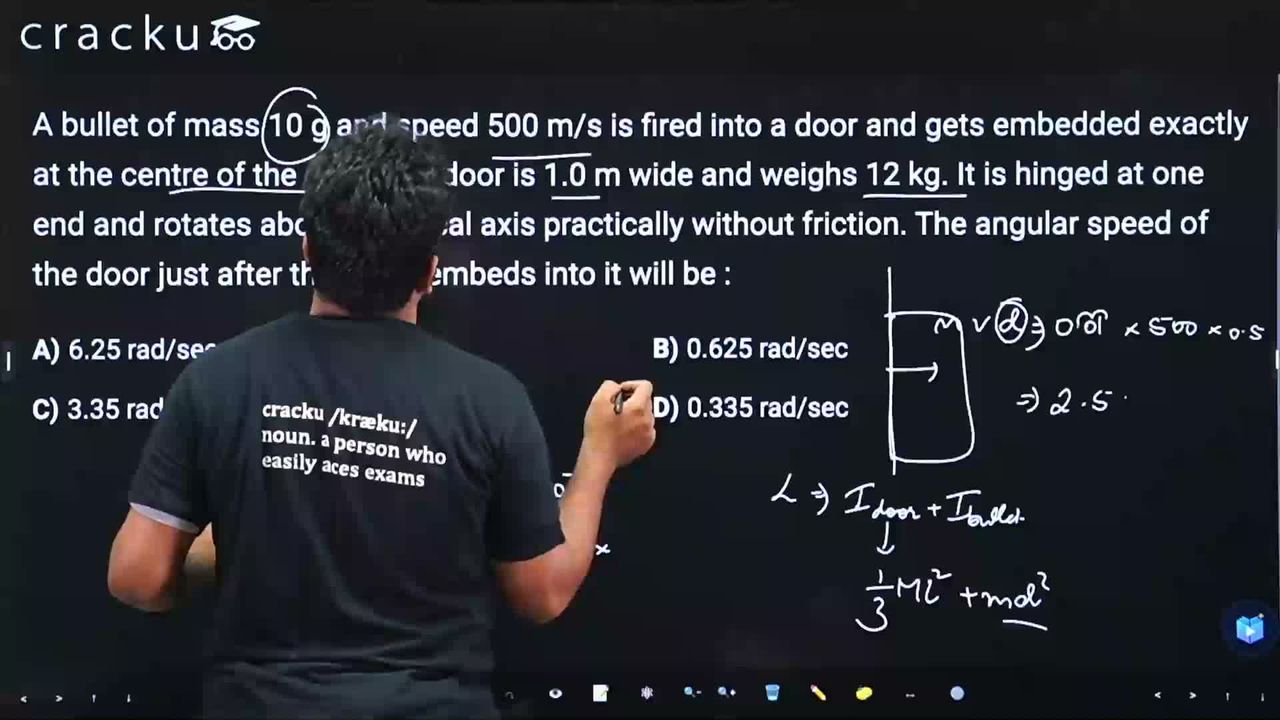 cracku
A bullet of mass 10 g and speed 500 m/s is fired into a door and gets embedded exactly
at the centre of the door is 1.0 m wide and weighs 12 kg. It is hinged at one
end and rotates al axis practically without friction. The angular speed of
the door just after embeds into it will be :
A) 6.25 rad/sec
B) 0.625 rad/sec
C) 3.35 rad
D) 0.335 rad/sec
cracku /krækuː/
noun. a person who
easily aces exams
m v d ⇒ 0.01 × 500 × 0.5
⇒ 2.5
L ⇒ I door + I bullet
1/3 Ml² + md²
×